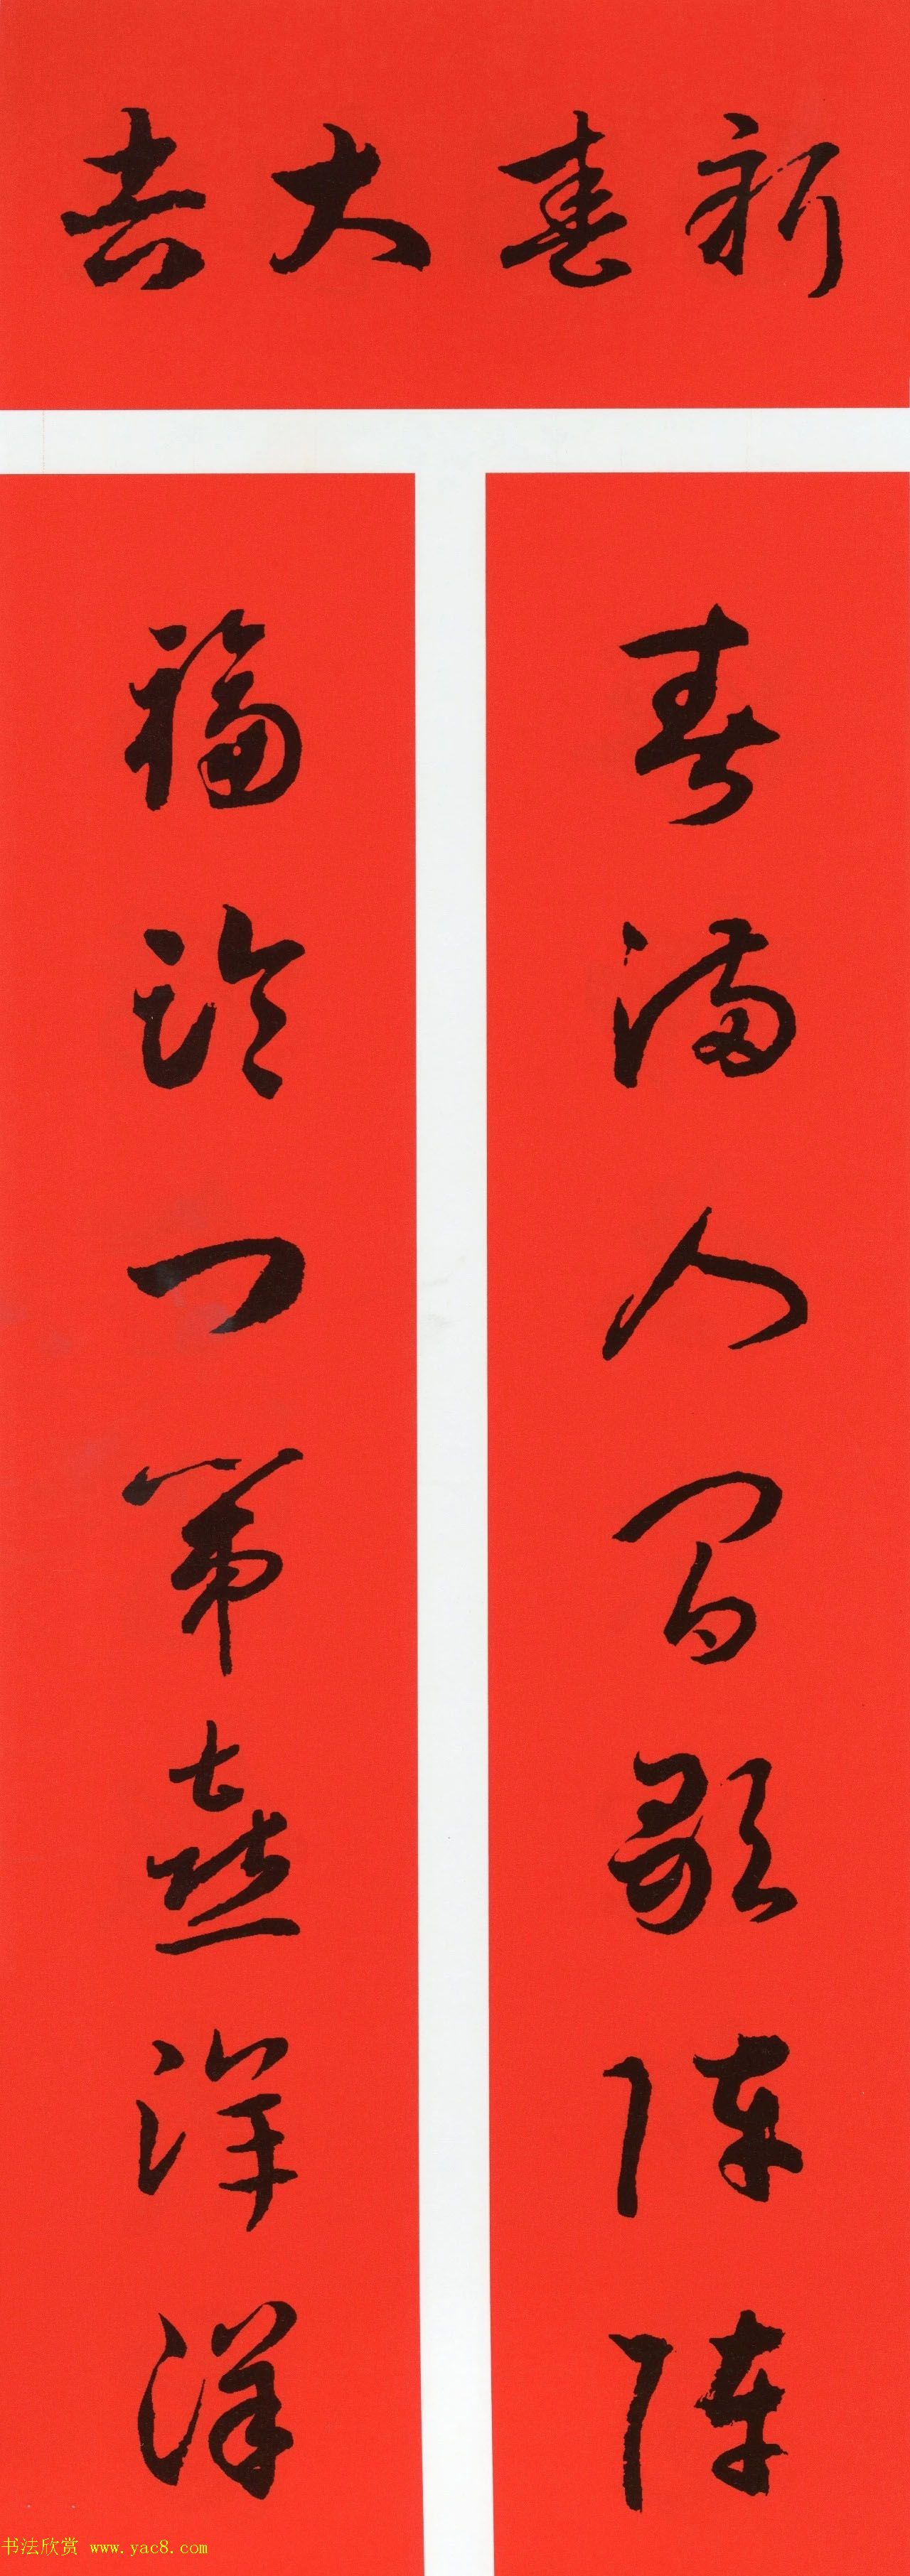 新春大吉
春满人间歌阵阵
福临门第喜洋洋
书法欣赏 www.yac8.com